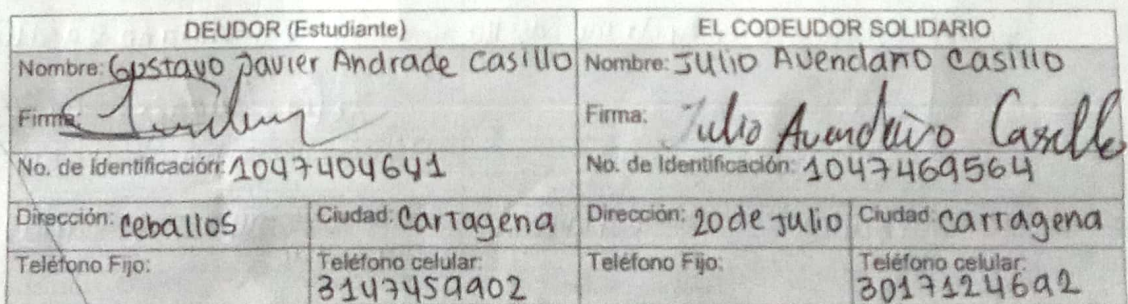 DEUDOR (Estudiante) EL CODEUDOR SOLIDARIO
Nombre: Gustavo Javier Andrade Casillo Nombre: Julio Avendano Casillo
Firma: Firma: Julio Avendaño Casillo
No. de Identificación: 1047404641 No. de Identificación: 1047469564
Dirección: Ceballos Ciudad: Cartagena Dirección: 20 de Julio Ciudad: Cartagena
Teléfono Fijo: Teléfono celular: Teléfono Fijo: Teléfono celular:
3147459902 3017124692